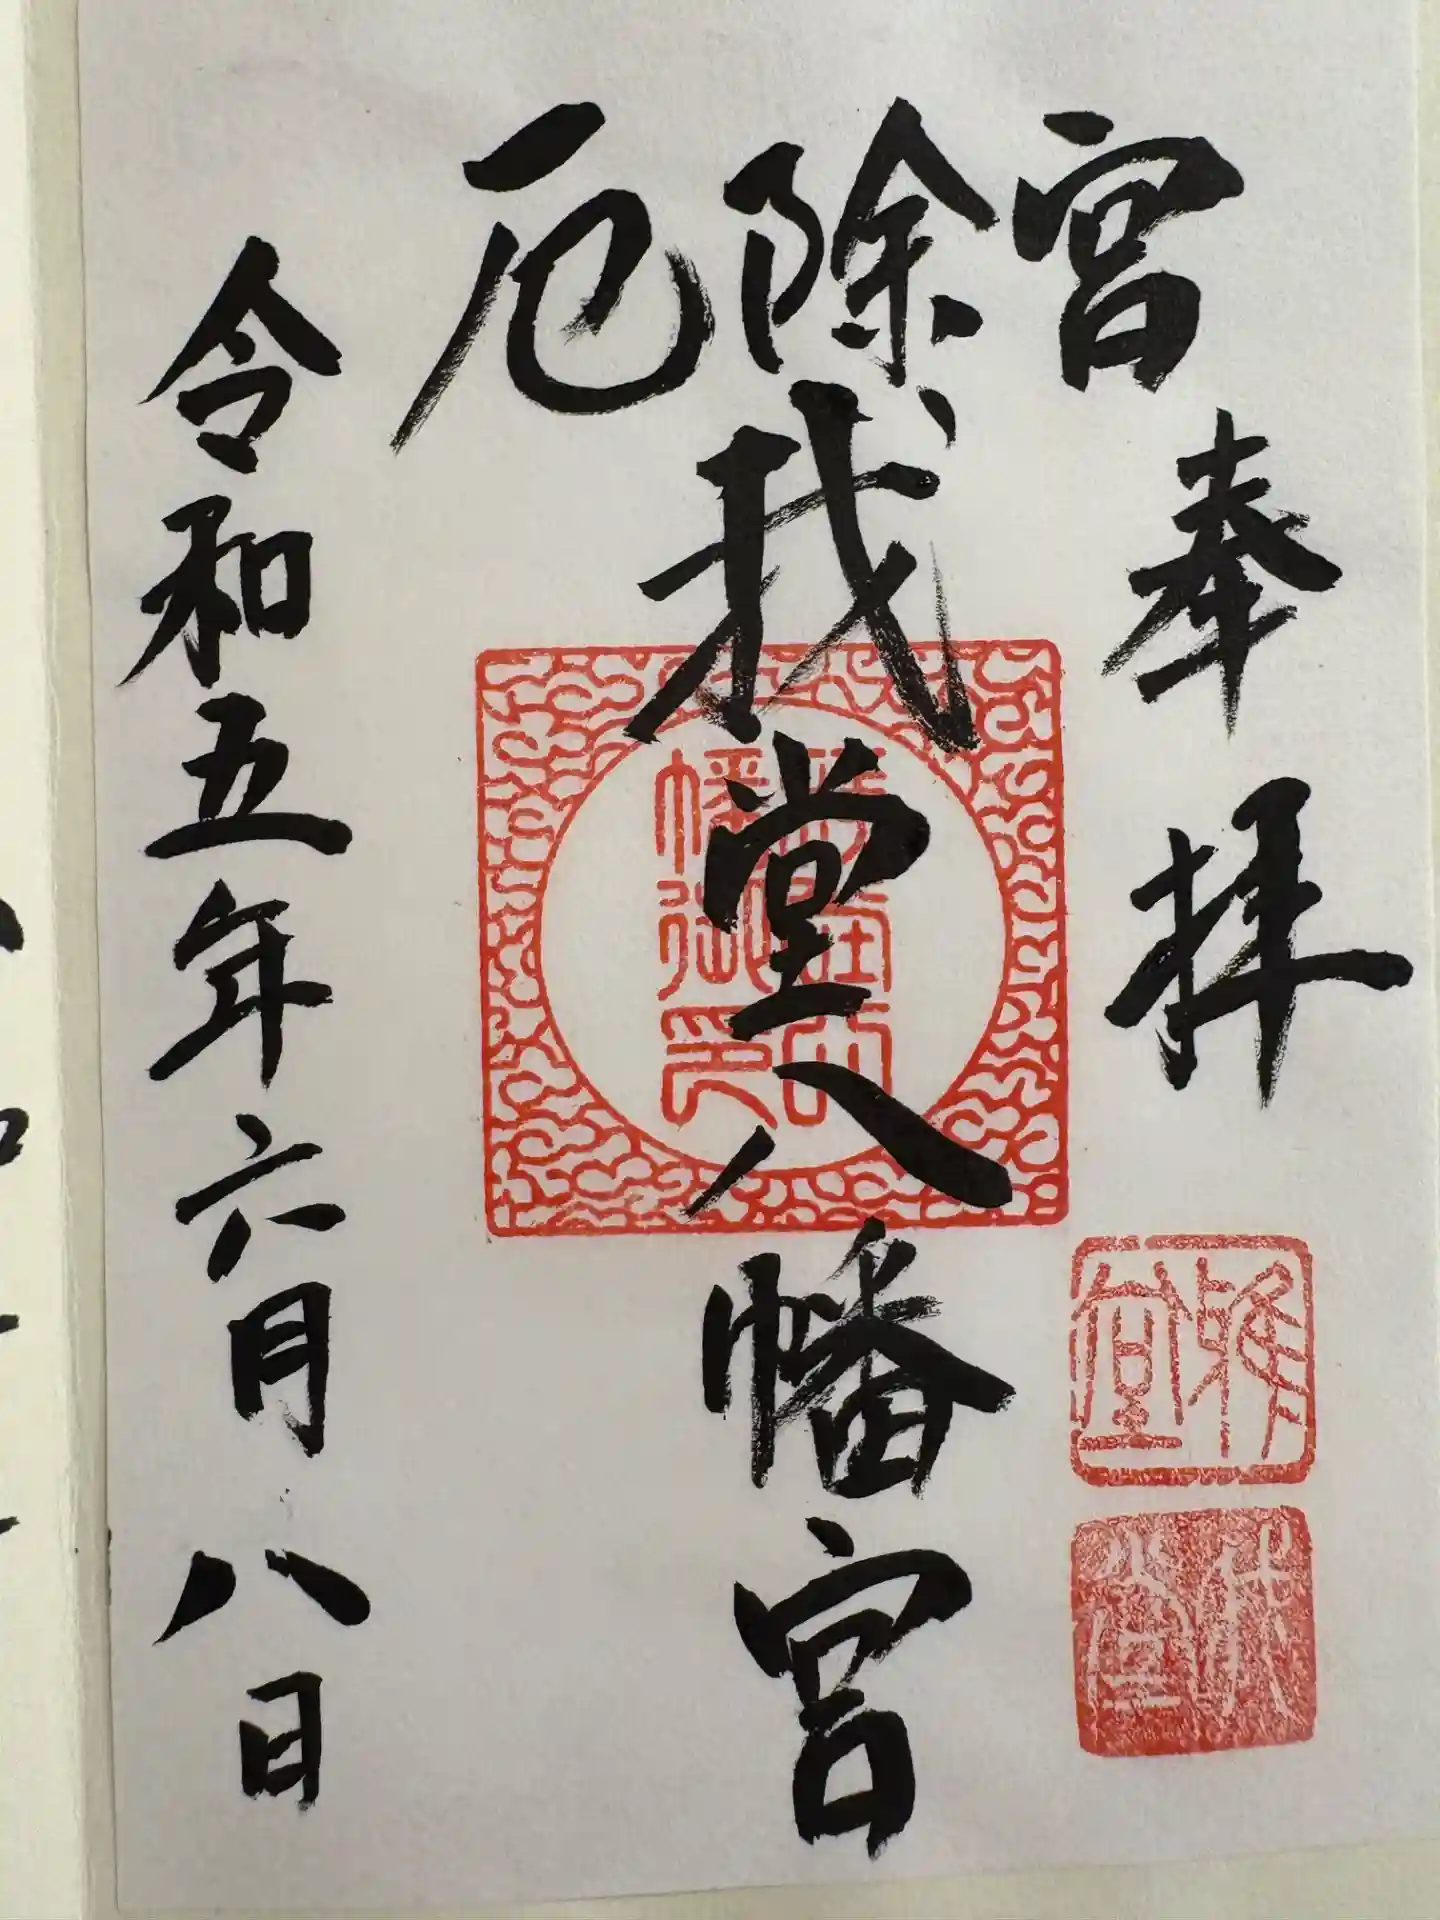 奉拝
厄除宮
我堂八幡宮
令和五年六月八日